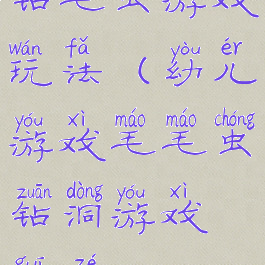 钻毛虫游戏
wán fǎ yòu ér
玩法(幼儿
yóu xì máo máo chóng
游戏毛毛虫
zuān dòng yóu xì
钻洞游戏
guī zé